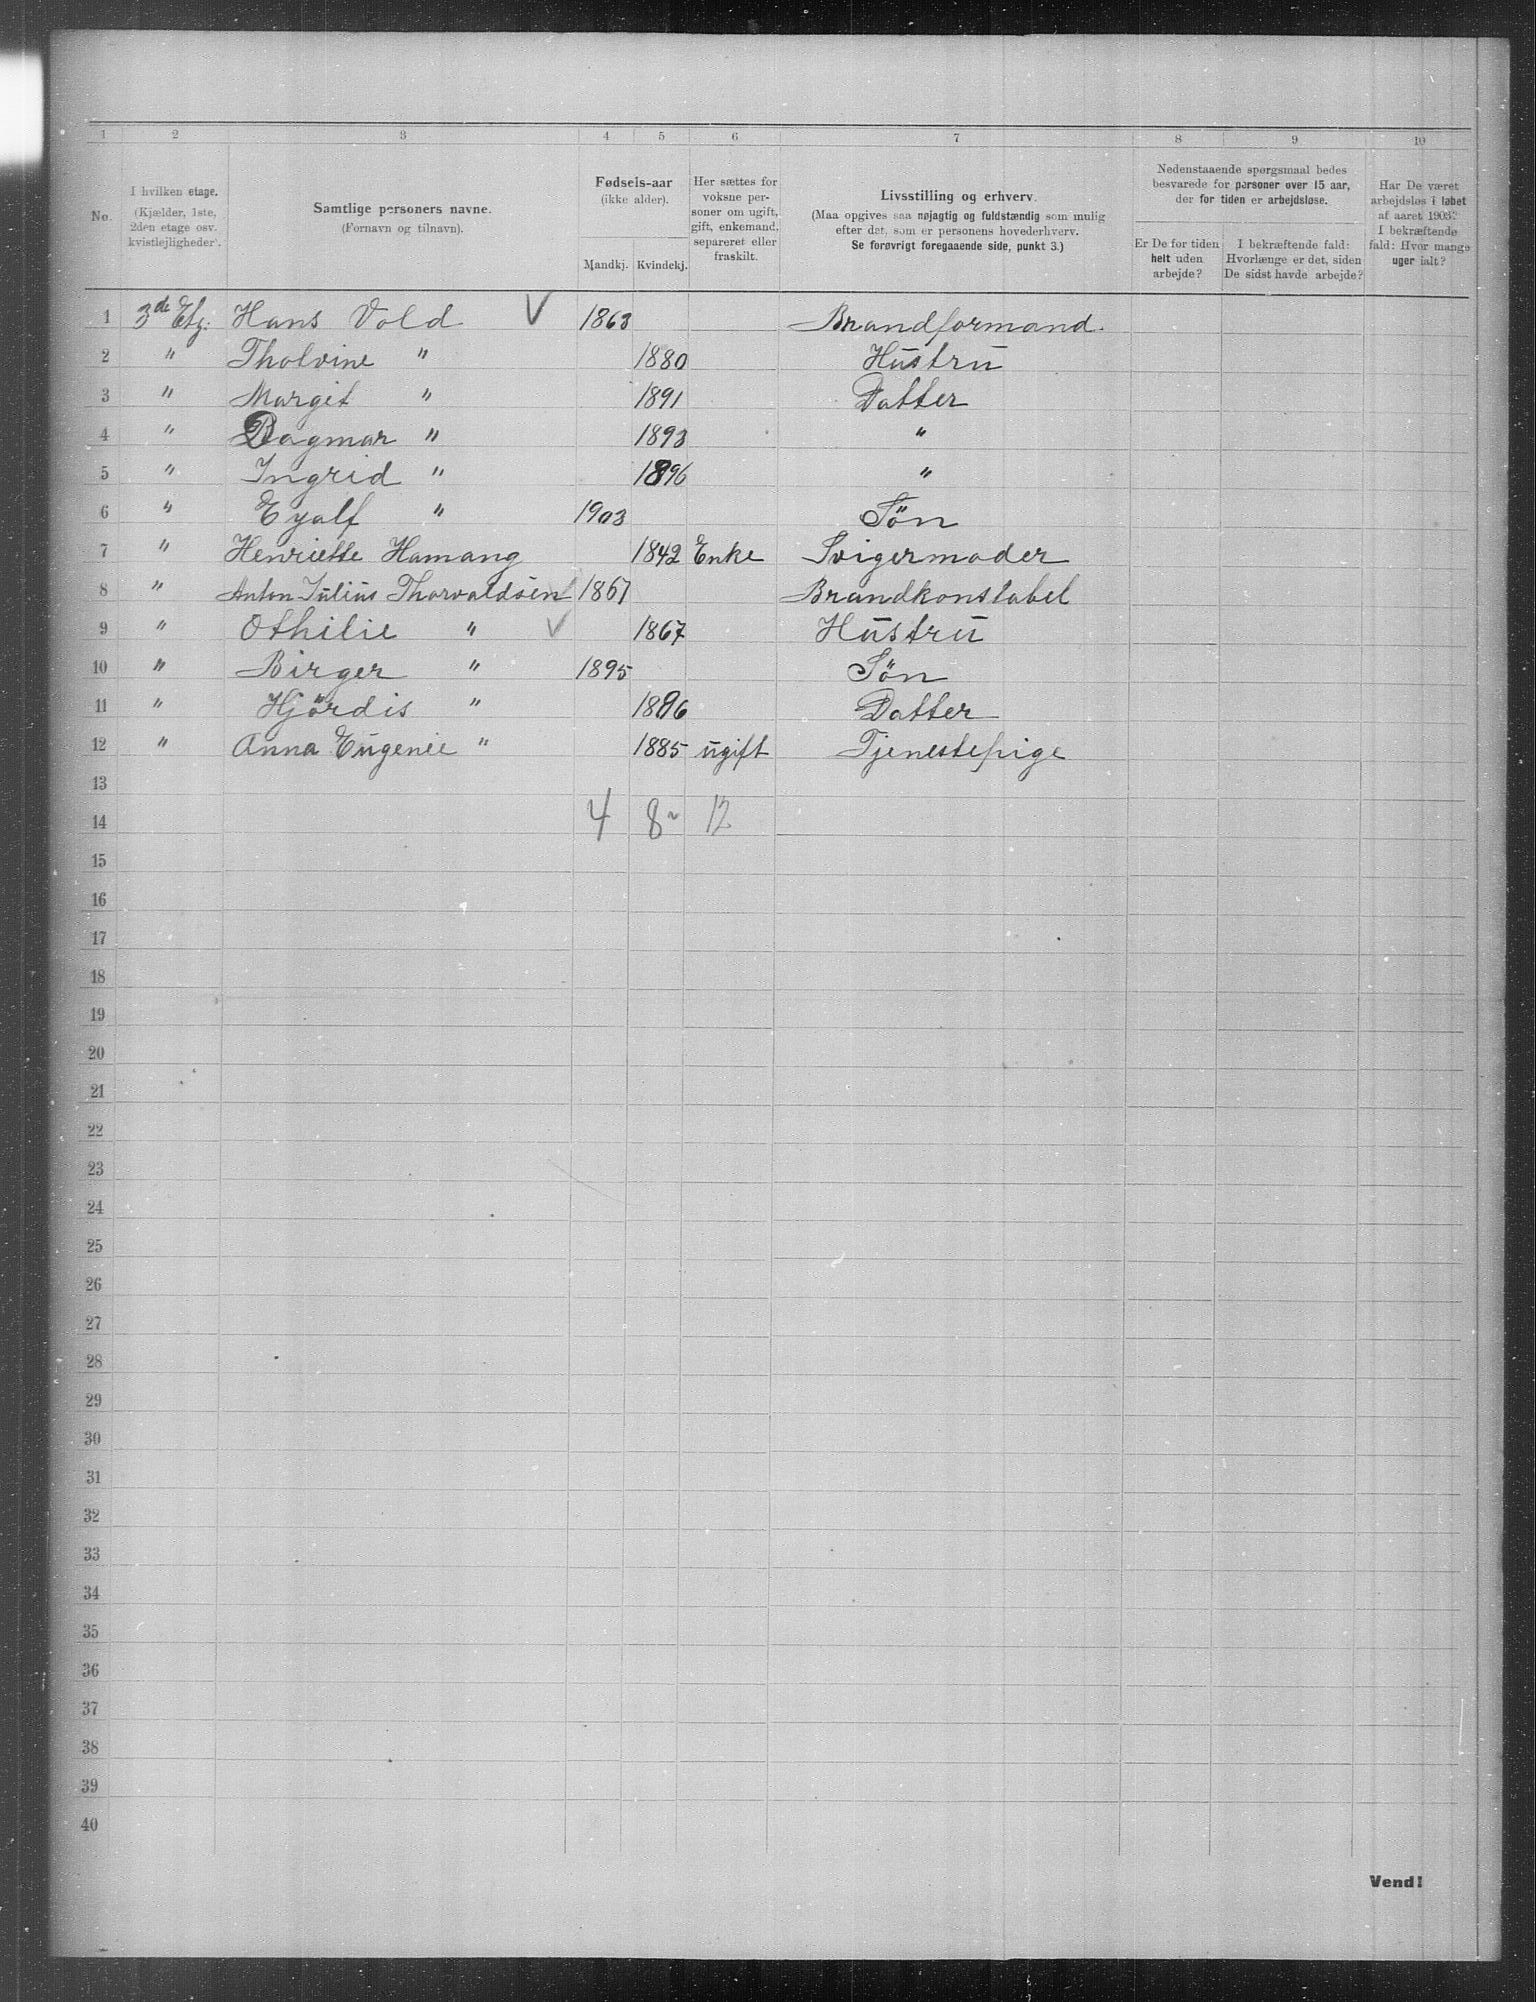 1 2 3 4 5 6 7 8 9 10
No. I hvilken etage. (Kjælder, 1ste, 2den etage osv. kvistlejligheder). Samtlige personers navne. (Fornavn og tilnavn). Fødsels-aar (ikke alder). Mandkj. Kvindekj. Her sættes for voksne personer om ugift, gift, enkemand, separeret eller fraskilt. Livsstilling og erhverv. (Maa opgives saa nøjagtig og fuldstændig som mulig efter det, som er personens hovederhverv. Se forøvrigt foregaaende side, punkt 3.) Nedenstaaende spørgsmaal bedes besvarede for personer over 15 aar, der for tiden er arbejdsløse. Er De for tiden helt uden arbejde? I bekræftende fald: Hvorlænge er det, siden De sidst havde arbejde? Har De været arbejdsløs i løbet af aaret 1903? I bekræftende fald: Hvor mange uger ialt?
1 3de Etg. Hans Vold V 1863 Brandformand.
2 " Tholvine " 1880 Hustru
3 " Margit " 1891 Datter
4 " Dagmar " 1893 "
5 " Ingrid " 1896 "
6 " Eyalf " 1903 Søn
7 " Henriette Hamang 1842 Enke Svigermoder
8 " Anton Julius Thorvaldsen V 1867 Brandkonstabel
9 " Othilie " V 1867 Hustru
10 " Birger " 1895 Søn
11 " Hjördis " 1896 Datter
12 " Anna Eugenie " 1885 ugift Tjenestepige
13
14 4 8 12
15
16
17
18
19
20
21
22
23
24
25
26
27
28
29
30
31
32
33
34
35
36
37
38
39
40
Vend!